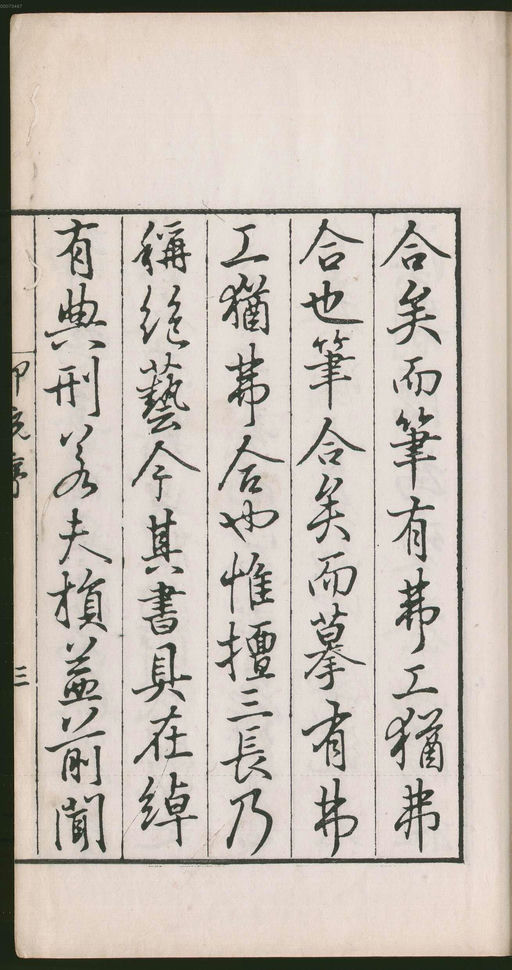 合矣而筆有弗工猶弗
合也筆合矣而摹有弗
工猶弗合也惟擅三長乃
稱絶藝今其書具在綽
有典刑若夫損益前聞
印統序
三
00073467